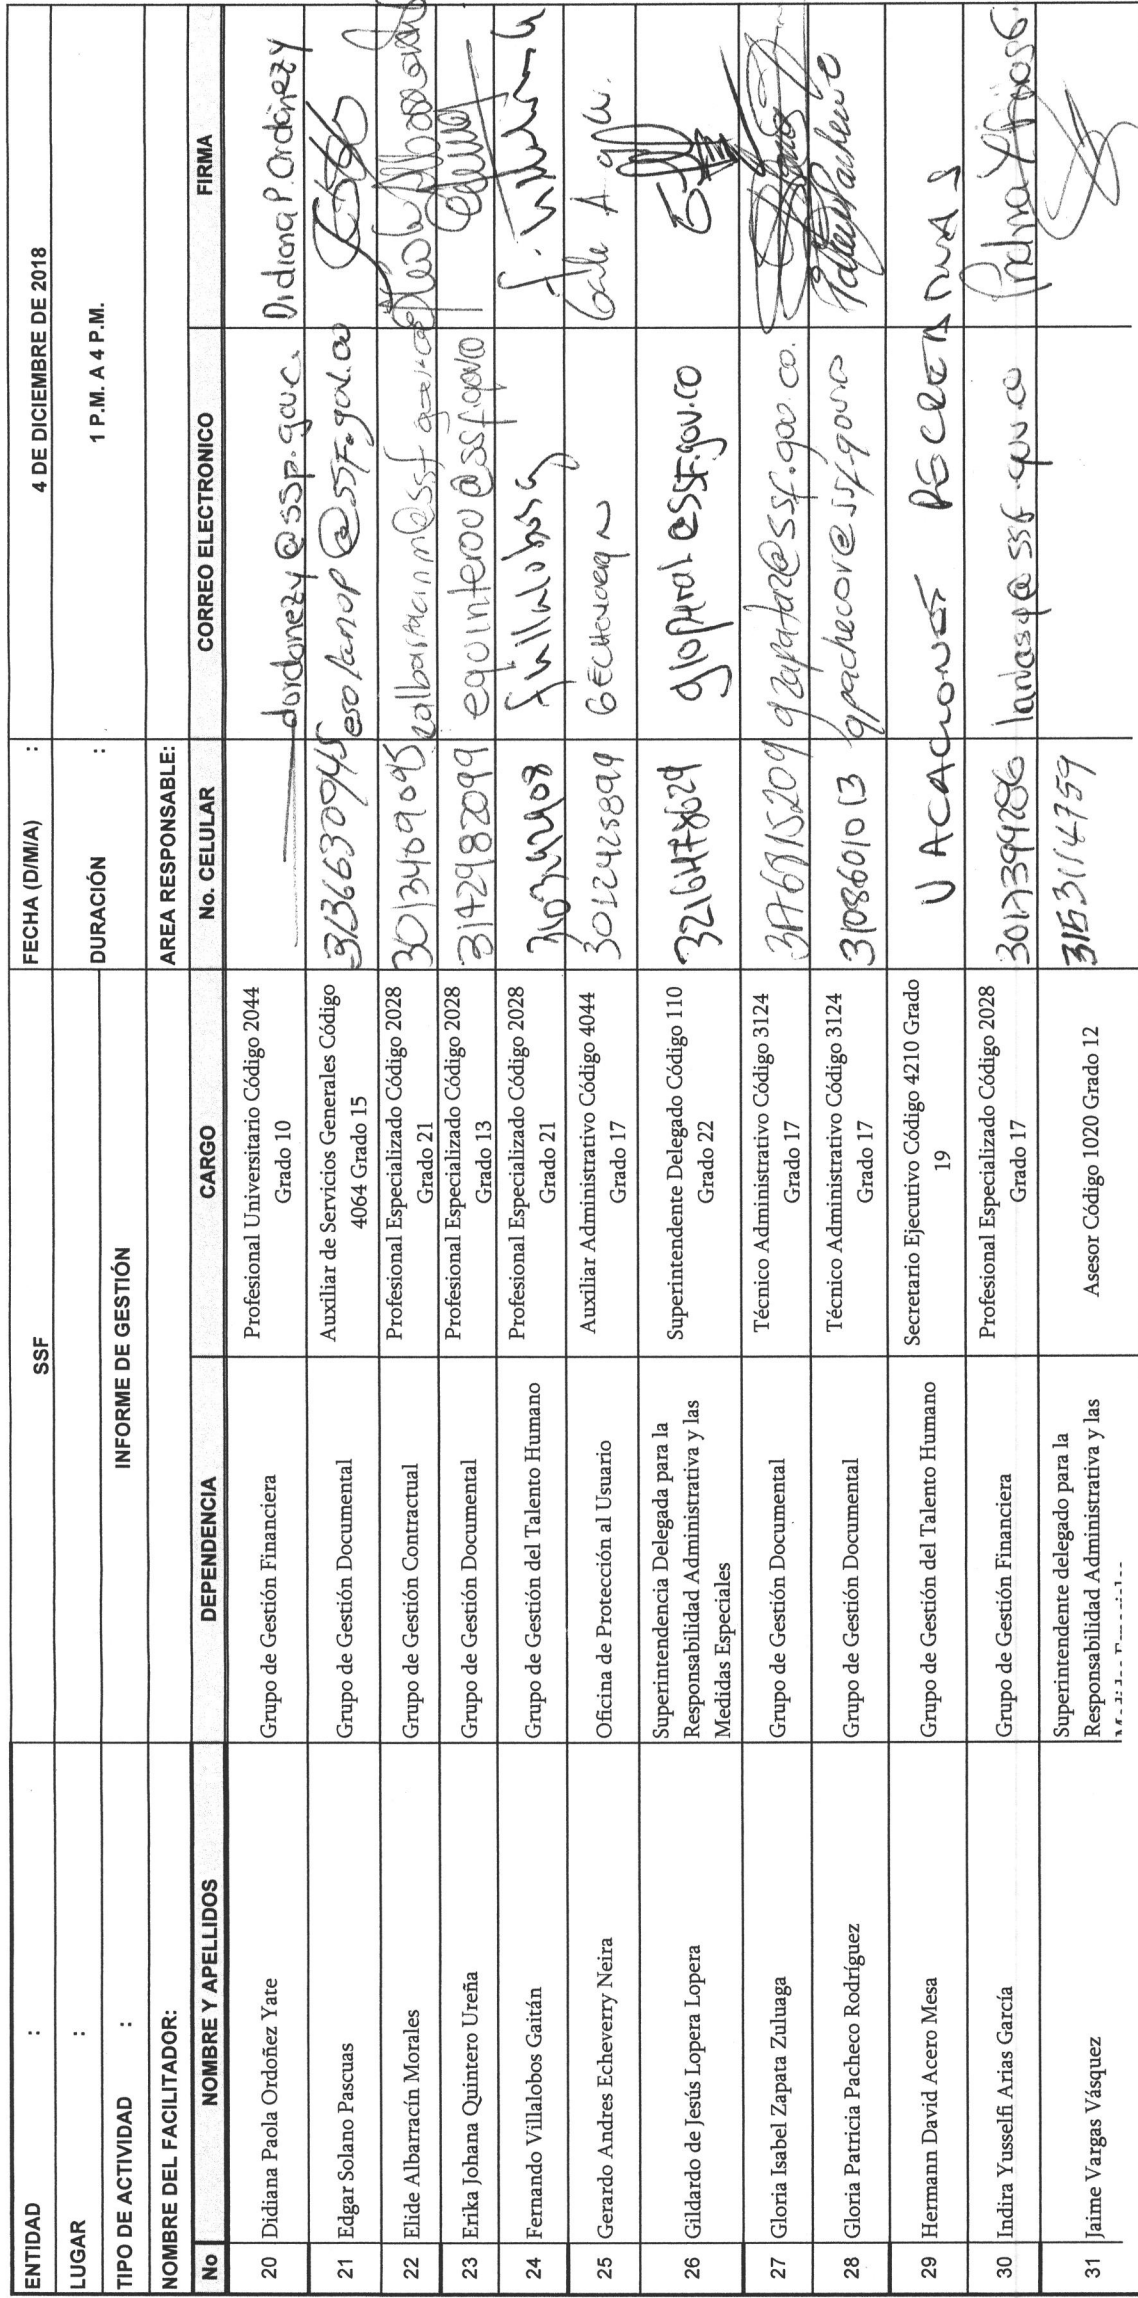 ENTIDAD : SSF FECHA (D/M/A) : 4 DE DICIEMBRE DE 2018
LUGAR :
TIPO DE ACTIVIDAD : INFORME DE GESTIÓN DURACIÓN : 1 P.M. A 4 P.M.
NOMBRE DEL FACILITADOR: AREA RESPONSABLE:
No NOMBRE Y APELLIDOS DEPENDENCIA CARGO No. CELULAR CORREO ELECTRONICO FIRMA
20 Didiana Paola Ordoñez Yate Grupo de Gestión Financiera Profesional Universitario Código 2044
Grado 10
dordonezy@ssp.gov.c Didiana P. Ordoñez Y
21 Edgar Solano Pascuas Grupo de Gestión Documental Auxiliar de Servicios Generales Código
4064 Grado 15
3136630945 esolanop@ssf.gov.co
22 Elide Albarracín Morales Grupo de Gestión Contractual Profesional Especializado Código 2028
Grado 21
3013409095 ealbarracinm@ssf.gov.co
23 Erika Johana Quintero Ureña Grupo de Gestión Documental Profesional Especializado Código 2028
Grado 13
3142982099 equinterou@ssf.gov.co
24 Fernando Villalobos Gaitán Grupo de Gestión del Talento Humano Profesional Especializado Código 2028
Grado 21
fvillalobosg
25 Gerardo Andres Echeverry Neira Oficina de Protección al Usuario Auxiliar Administrativo Código 4044
Grado 17
3012425899 GECHEVERRYN
26 Gildardo de Jesús Lopera Lopera Superintendencia Delegada para la
Responsabilidad Administrativa y las
Medidas Especiales
Superintendente Delegado Código 110
Grado 22
3216478629 @SSF.gov.co
27 Gloria Isabel Zapata Zuluaga Grupo de Gestión Documental Técnico Administrativo Código 3124
Grado 17
gzapataz@ssf.gov.co.
28 Gloria Patricia Pacheco Rodríguez Grupo de Gestión Documental Técnico Administrativo Código 3124
Grado 17
3108601013 gpachecor@ssf.gov.co
29 Hermann David Acero Mesa Grupo de Gestión del Talento Humano Secretario Ejecutivo Código 4210 Grado
19
VACACIONES DECRETADAS
30 Indira Yusselfi Arias García Grupo de Gestión Financiera Profesional Especializado Código 2028
Grado 17
3017399286 @ssf.gov.co
31 Jaime Vargas Vásquez Superintendente delegado para la
Responsabilidad Administrativa y las
Asesor Código 1020 Grado 12
3153114759